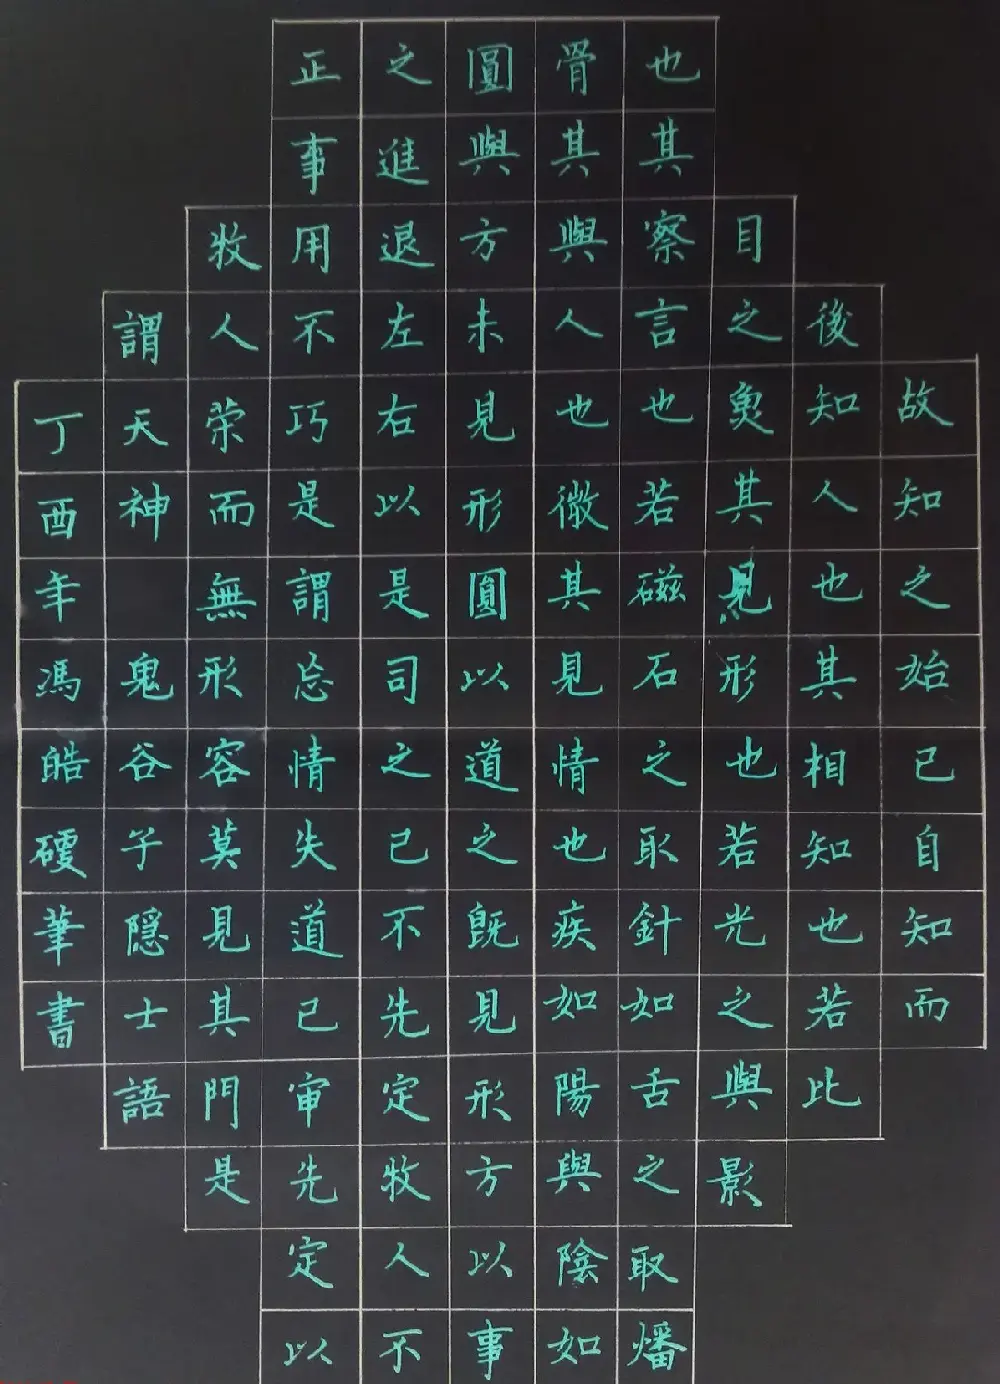 故知之始己自知而
後知人也其相知也若比
目之魚其見形也若光之與影
也其察言也若磁石之取針如舌之取燔
骨其與人也微其見情也疾如陽與陰如
圓與方未見形圓以道之既見形方以事
之進退左右以是司之己不先定牧人不
正事用不巧是謂忘情失道己审先定以
牧人荣而無形容莫見其門是
謂天神 鬼谷子隱士語
丁酉年馮皓硬筆書